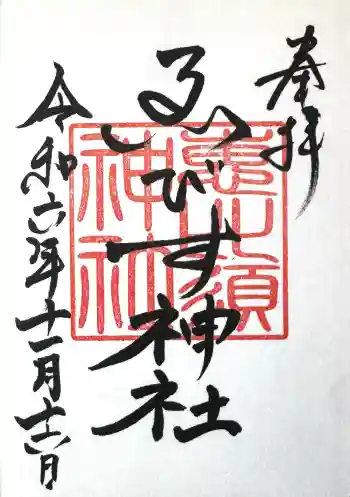 奉拝
ゑびす神社
惠比須
神社
令和六年十一月十六日